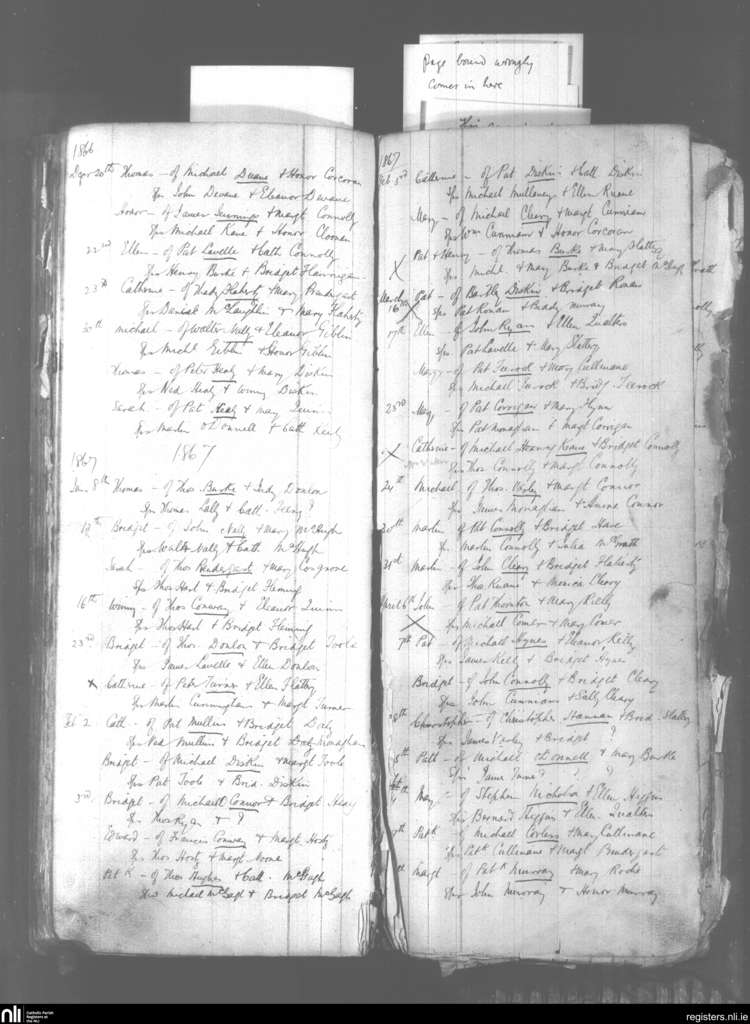 Page bound wrongly
comes in here
1866
20th Thomas - of Michael Duane & Honor Corcoran
Sprs John Devane & Eleanor Devane
Honor - of James & Margt Connolly
Sprs Michael Kane & Honor
22nd Ellen - of Pat Lavelle & Cath Connolly
Sprs Henry Burke & Bridget Flannigan
23rd Catherine - of Thady Flaherty & Mary Prendergast
Sprs Daniel McLaughlin & Mary Flaherty
30th Michael - of Walter Nally & Eleanor Giblin
Sprs Michl Giblin & Honor Giblin
Thomas - of Peter Healy & Mary Diskin
Sprs Ned Healy & Winny Diskin
Sarah - of Pat Healy & Mary Quinn
Sprs Martin O'Donnell & Cath Healy
1867
1867
Jan. 8th Thomas - of Thos Burke & Judy Donlon
Sprs Thomas Lally & Cath. Feeny?
Bridget - of John Nally & Mary McHugh
Sprs Walter Nally & Cath McHugh
Sarah - of Thos Prendergast & Mary Cosgrove
Sprs Thos Hart & Bridget Fleming
16th Winny - of Thos Conway & Eleanor Quinn
Sprs Thos Hart & Bridget Fleming
23rd Bridget - of Thos. Donlon & Bridget Toole
Sprs James Lavelle & Ellen Donlon
x Catherine - of Peter Turner & Ellen Flattery
Sprs Martin Cunningham & Margt Turner
Feb 2 Cath - of Pat Mullins & Bridget
Sprs Ned Mullins & Bridget Monaghan
Bridget - of Michael Diskin & Margt Toole
Sprs Pat Toole & Brid. Diskin
3rd Bridget - of Michael Connor & Bridget
Sprs Thos Ryan & ?
Edward - of Francis Conway & Margt Horty
Sprs Thos Horty & Margt Noone
Patk - of Thos Hughes & Cath. McGagh
Sprs Michael McGagh & Bridget McGagh
1867
Feb 3rd Catherine - of Pat Diskin & Cath Diskin
Sprs Michael Mullaney & Ellen Ruane
Mary - of Michael Cleary & Margt Cunniam
Sprs Wm Cunniam & Honor Corcoran
Pat & Henry - of Thomas Burke & Mary Slattery
X Sprs Michl. & Mary Burke & Bridget
March 16th Pat - of Bartly Diskin & Bridget Ronan
X Sprs Pat Ronan & Biddy Murray
17th Ellen - of John Ryan & Ellen Qualters
Sprs Pat Lavelle & Mary Slattery
Mary - of Pat & Mary Cullinane
Sprs Michael & Bridgt
23rd Mary - of Pat Corrigan & Mary Flynn
Sprs Pat Monaghan & Margt Corrigan
X Catherine - of Michael Henry Kane & Bridget Connolly
Sprs Thos Connolly & Margt Connolly
24th Michael of Thos. Varly & Margt Connor
Sprs James Monaghan & Connor
Martin of Pat Connolly & Bridget Hare
Sprs Martin Connolly & Julia McGrath
31st Martin - of John Cleary & Bridget Flaherty
Sprs Thos Kirwan & Monica Cleary
April 6th John - of Pat Thornton & Mary Kelly
X Sprs Michael Comer & Mary Comer
7th Pat - of Michael Hynes & Eleanor Kelly
Sprs James Kelly & Bridget Hynes
Bridget - of John Connolly & Bridget Cleary
Sprs John Cunniam & Sally Cleary
Christopher - of Christopher Hannan & Brid. Slattery
Sprs James Varley & Bridget ?
Patt - of Michael O'Donnell & Mary Burke
Sprs James ? ?
Mary - of Stephen Nicholson & Ellen Higgins
Sprs Bernard Higgins & Ellen Qualters
Patk - of Michael Corless & Mary Cullinane
Sprs Patk Cullinane & Margt Prendergast
Margt - of Patk Murray & Mary Roche
Sprs John Murray & Honor Murray
nli
Catholic Parish
Registers at
the NLI
registers.nli.ie